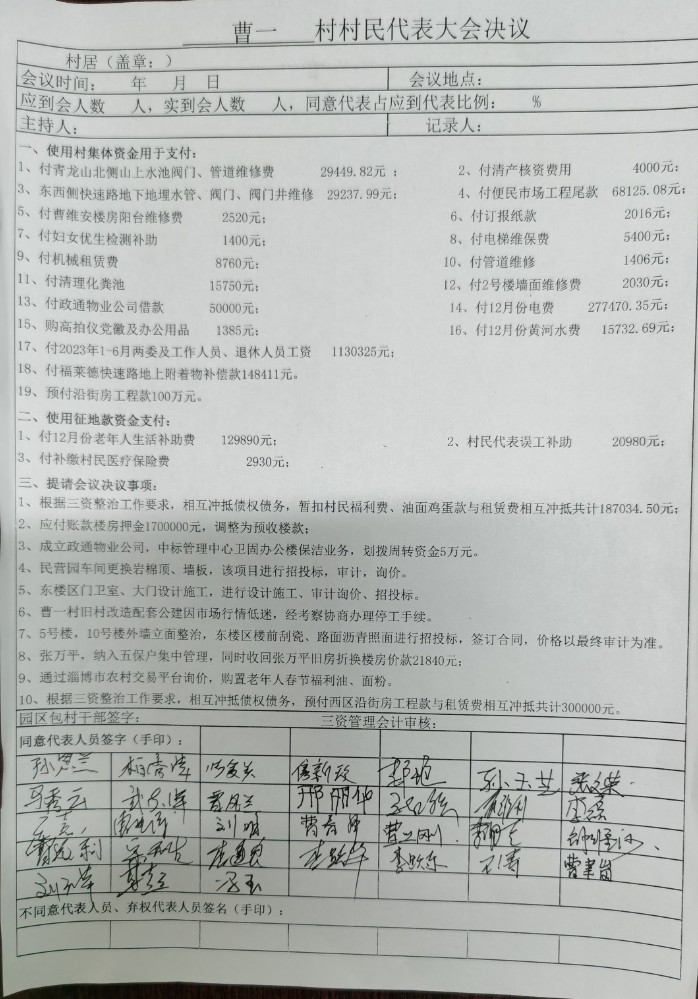 曹一 村村民代表大会决议
村居（盖章：）
会议时间： 年 月 日 会议地点：
应到会人数 人，实到会人数 人，同意代表占应到代表比例： %
主持人： 记录人：
一、使用村集体资金用于支付：
1、付青龙山北侧山上水池阀门、管道维修费 29449.82元； 2、付清产核资费用 4000元；
3、东西侧快速路地下地埋水管、阀门、阀门井维修 29237.99元； 4、付便民市场工程尾款 68125.08元；
5、付曹维安楼房阳台维修费 2520元； 6、付订报纸款 2016元；
7、付妇女优生检测补助 1400元； 8、付电梯维保费 5400元；
9、付机械租赁费 8760元； 10、付管道维修 1406元；
11、付清理化粪池 15750元； 12、付2号楼墙面维修费 2030元；
13、付政通物业公司借款 50000元； 14、付12月份电费 277470.35元；
15、购高拍仪党徽及办公用品 1385元； 16、付12月份黄河水费 15732.69元；
17、付2023年1-6月两委及工作人员、退休人员工资 1130325元；
18、付福莱德快速路地上附着物补偿款148411元。
19、预付沿街房工程款100万元。
二、使用征地款资金支付：
1、付12月份老年人生活补助费 129890元； 2、村民代表误工补助 20980元；
3、付补缴村民医疗保险费 2930元；
三、提请会议决议事项：
1、根据三资整治工作要求，相互冲抵债权债务，暂扣村民福利费、油面鸡蛋款与租赁费相互冲抵共计187034.50元；
2、应付账款楼房押金1700000元，调整为预收楼款；
3、成立政通物业公司，中标管理中心卫固办公楼保洁业务，划拨周转资金5万元。
4、民营园车间更换岩棉顶、墙板，该项目进行招投标，审计，询价。
5、东楼区门卫室、大门设计施工，进行设计施工、审计询价、招投标。
6、曹一村旧村改造配套公建因市场行情低迷，经考察协商办理停工手续。
7、5号楼，10号楼外墙立面整治，东楼区楼前刮瓷、路面沥青照面进行招投标，签订合同，价格以最终审计为准。
8、张万平，纳入五保户集中管理，同时收回张万平旧房折换楼房价款21840元；
9、通过淄博市农村交易平台询价，购置老年人春节福利油、面粉。
10、根据三资整治工作要求，相互冲抵债权债务，预付西区沿街房工程款与租赁费相互冲抵共计300000元。
园区包村干部签字： 三资管理会计审核：
同意代表人员签字（手印）：
不同意代表人员、弃权代表人员签名（手印）：